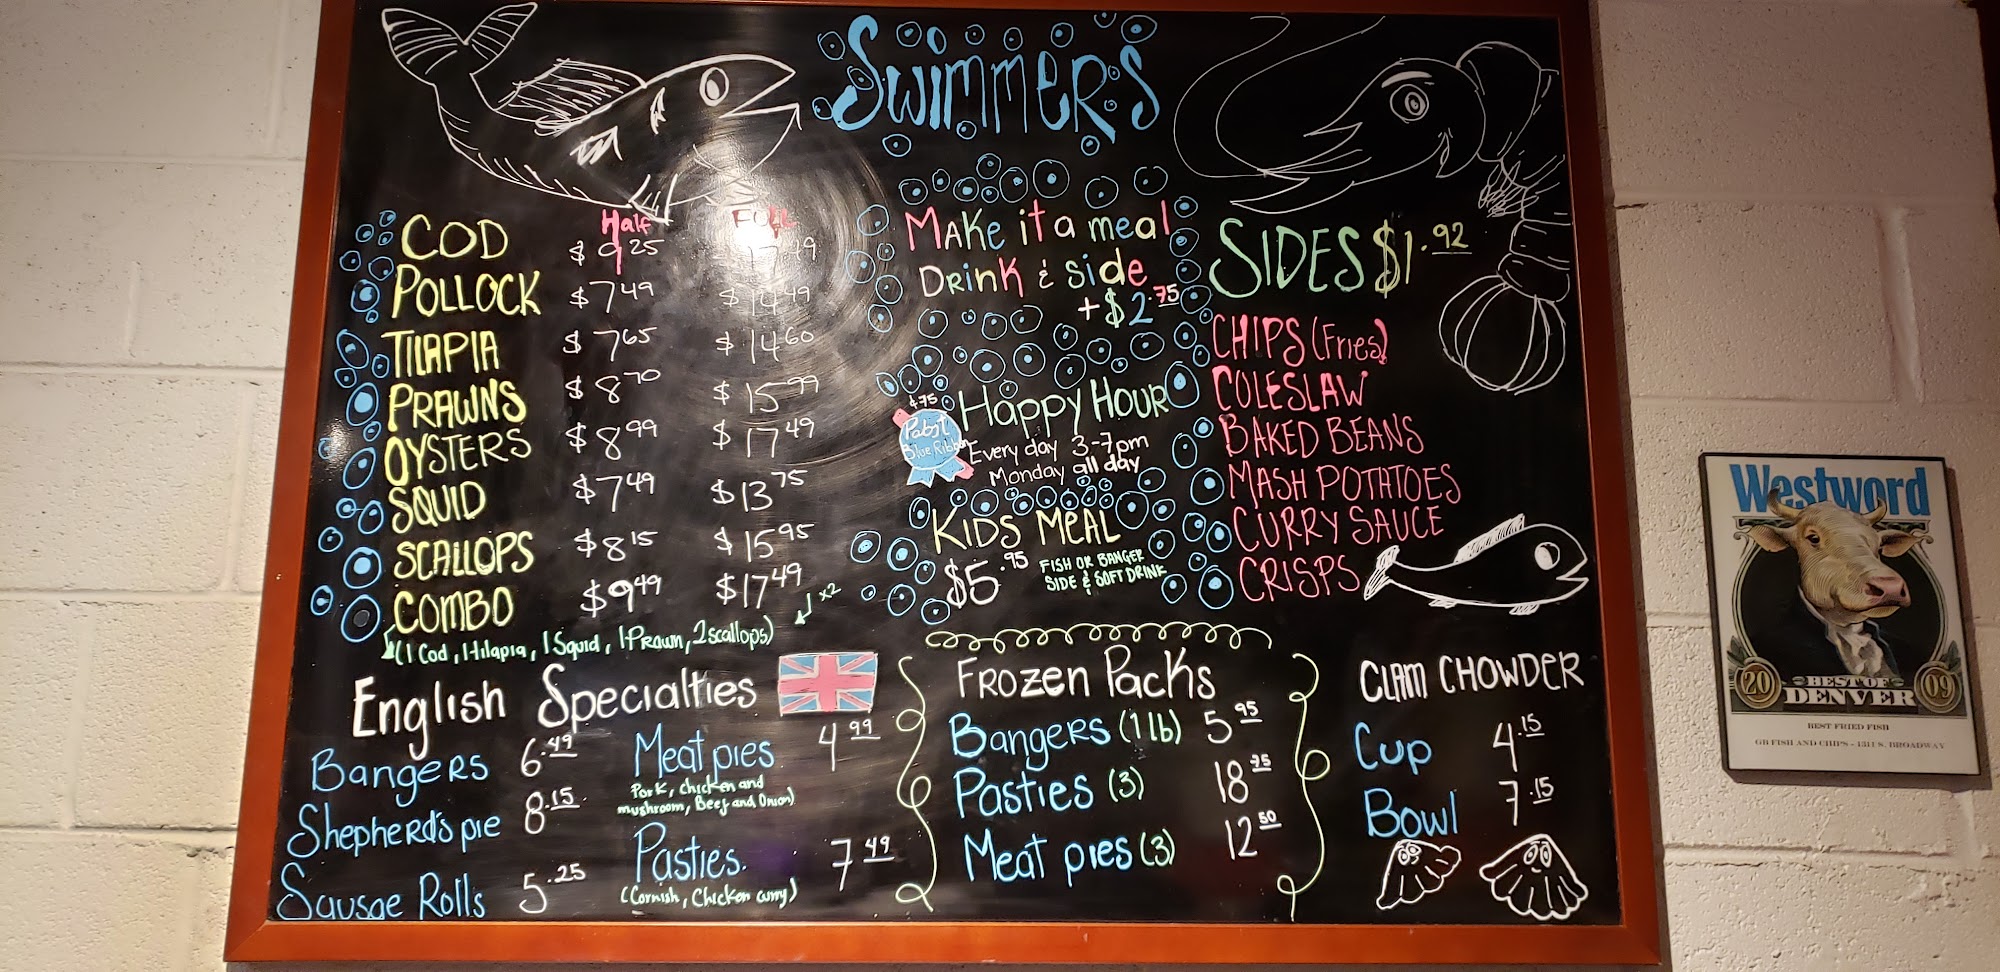 Swimmers
Half
COD $9.25
POLLOCK $7.49 $14.49
TILAPIA $7.65 $14.60
PRAWNS $8.70 $15.99
OYSTERS $8.99 $17.49
SQUID $7.49 $13.75
SCALLOPS $8.15 $15.95
COMBO $9.49 $17.49
(1 Cod, 1 tilapia, 1 Squid, 1 Prawn, 2 scallops) x2
Make it a meal
Drink & side
+$2.75
Happy Hour
Pabst
Blue Ribbon
Every day 3-7pm
Monday all day
KIDS MEAL
$5.95 FISH OR BANGER
SIDE & SOFT DRINK
SIDES $1.92
CHIPS (Fries)
COLESLAW
BAKED BEANS
MASH POTATOES
CURRY SAUCE
CRISPS
English Specialties
Bangers 6.49
Shepherd's pie 8.15
Sausge Rolls 5.25
Meat pies 4.99
Pork, Chicken and
mushroom, Beef and Onion)
Pasties. 7.49
(Cornish, Chicken curry)
Frozen Packs
Bangers (1 lb) 5.95
Pasties (3) 18.75
Meat pies (3) 12.50
CLAM CHOWDER
Cup 4.15
Bowl 7.15
Westword
20 BEST OF 09
DENVER
BEST FRIED FISH
GB FISH AND CHIPS - 1311 S. BROADWAY